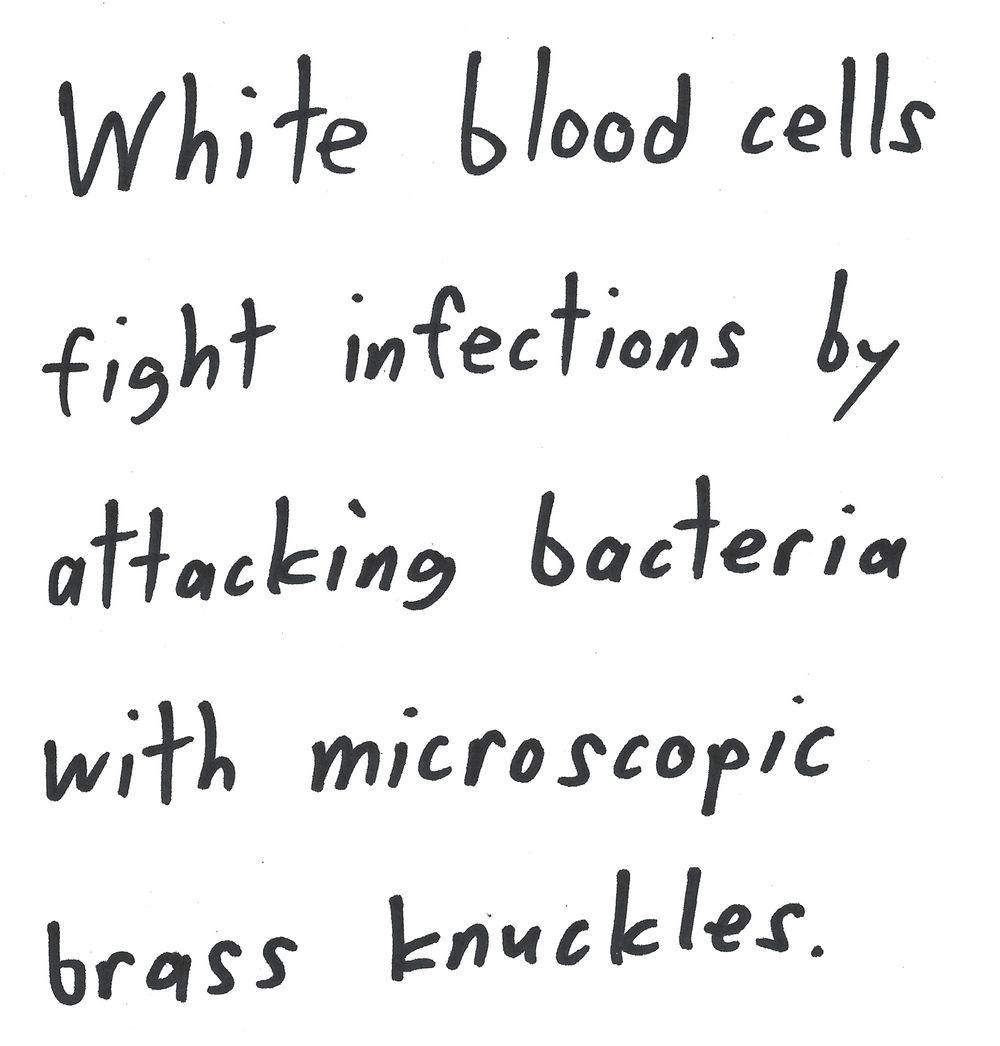 White blood cells
fight infections by
attacking bacteria
with microscopic
brass knuckles.